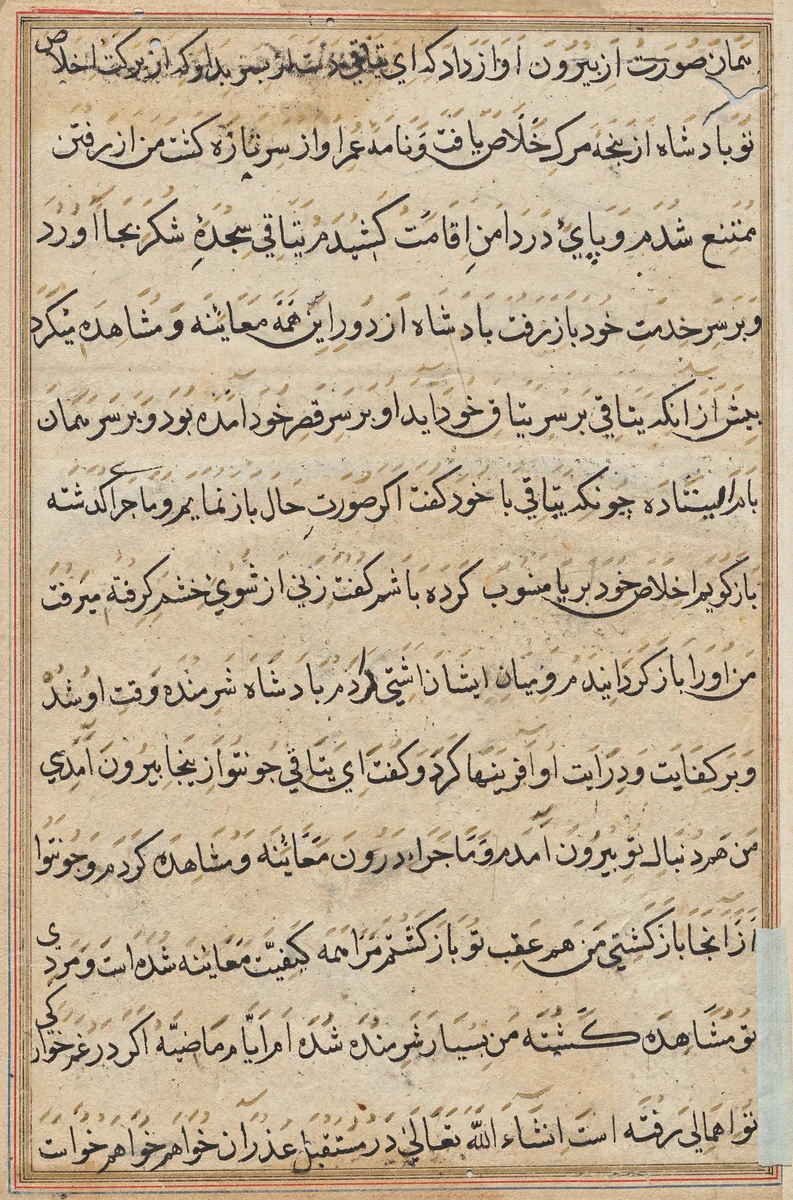 همان صورت از بیرون آواز داد که ای یتاقی دست از پسر بدار که از برکت اخلاص
تو بادشاه از پنجه مرک خلاص یافت و نامه عمر او از سر تازه کشت من از رفتن
ممتنع شدم و پای در دامن اقامت کشیدم یتاقی سجدۀ شکر بجا آورد
و بر سر خدمت خود باز رفت بادشاه از دور این همه معاینه و مشاهده میکرد
پیش از انکه یتاقی بر سر یتاق خود اید او بر سر قصر خود امده بود و بر سر همان
بام ایستاده چونکه یتاقی با خود کفت اکر صورت حال باز نمایم و ماجرا کذشته
باز کویم اخلاص خود بریا منسوب کرده باشم کفت زنی از شوی خشم کرفته میرفت
من اورا باز کردانیدم و میان ایشان اشتی کردم بادشاه شرمنده وقت او شد
و بر کفایت و درایت او آفرینها کرد و کفت ای یتاقی چو تو از ینجا بیرون آمدی
من هم دنبال تو بیرون آمدم و ماجراء درون معاینه و مشاهده کردم و چو تو
از آنجا باز کشتی من هم عقب تو باز کشتم مرا همه کیفیت معاینه شده است و مردی
تو مشاهده کشته من بسیار شرمنده شده ام ایام ماضیه اکر در غم خوارکی
تو اهمالی رفته است انشاء الله تعالی در مستقبل عذر ان خواهم خواهم خواست